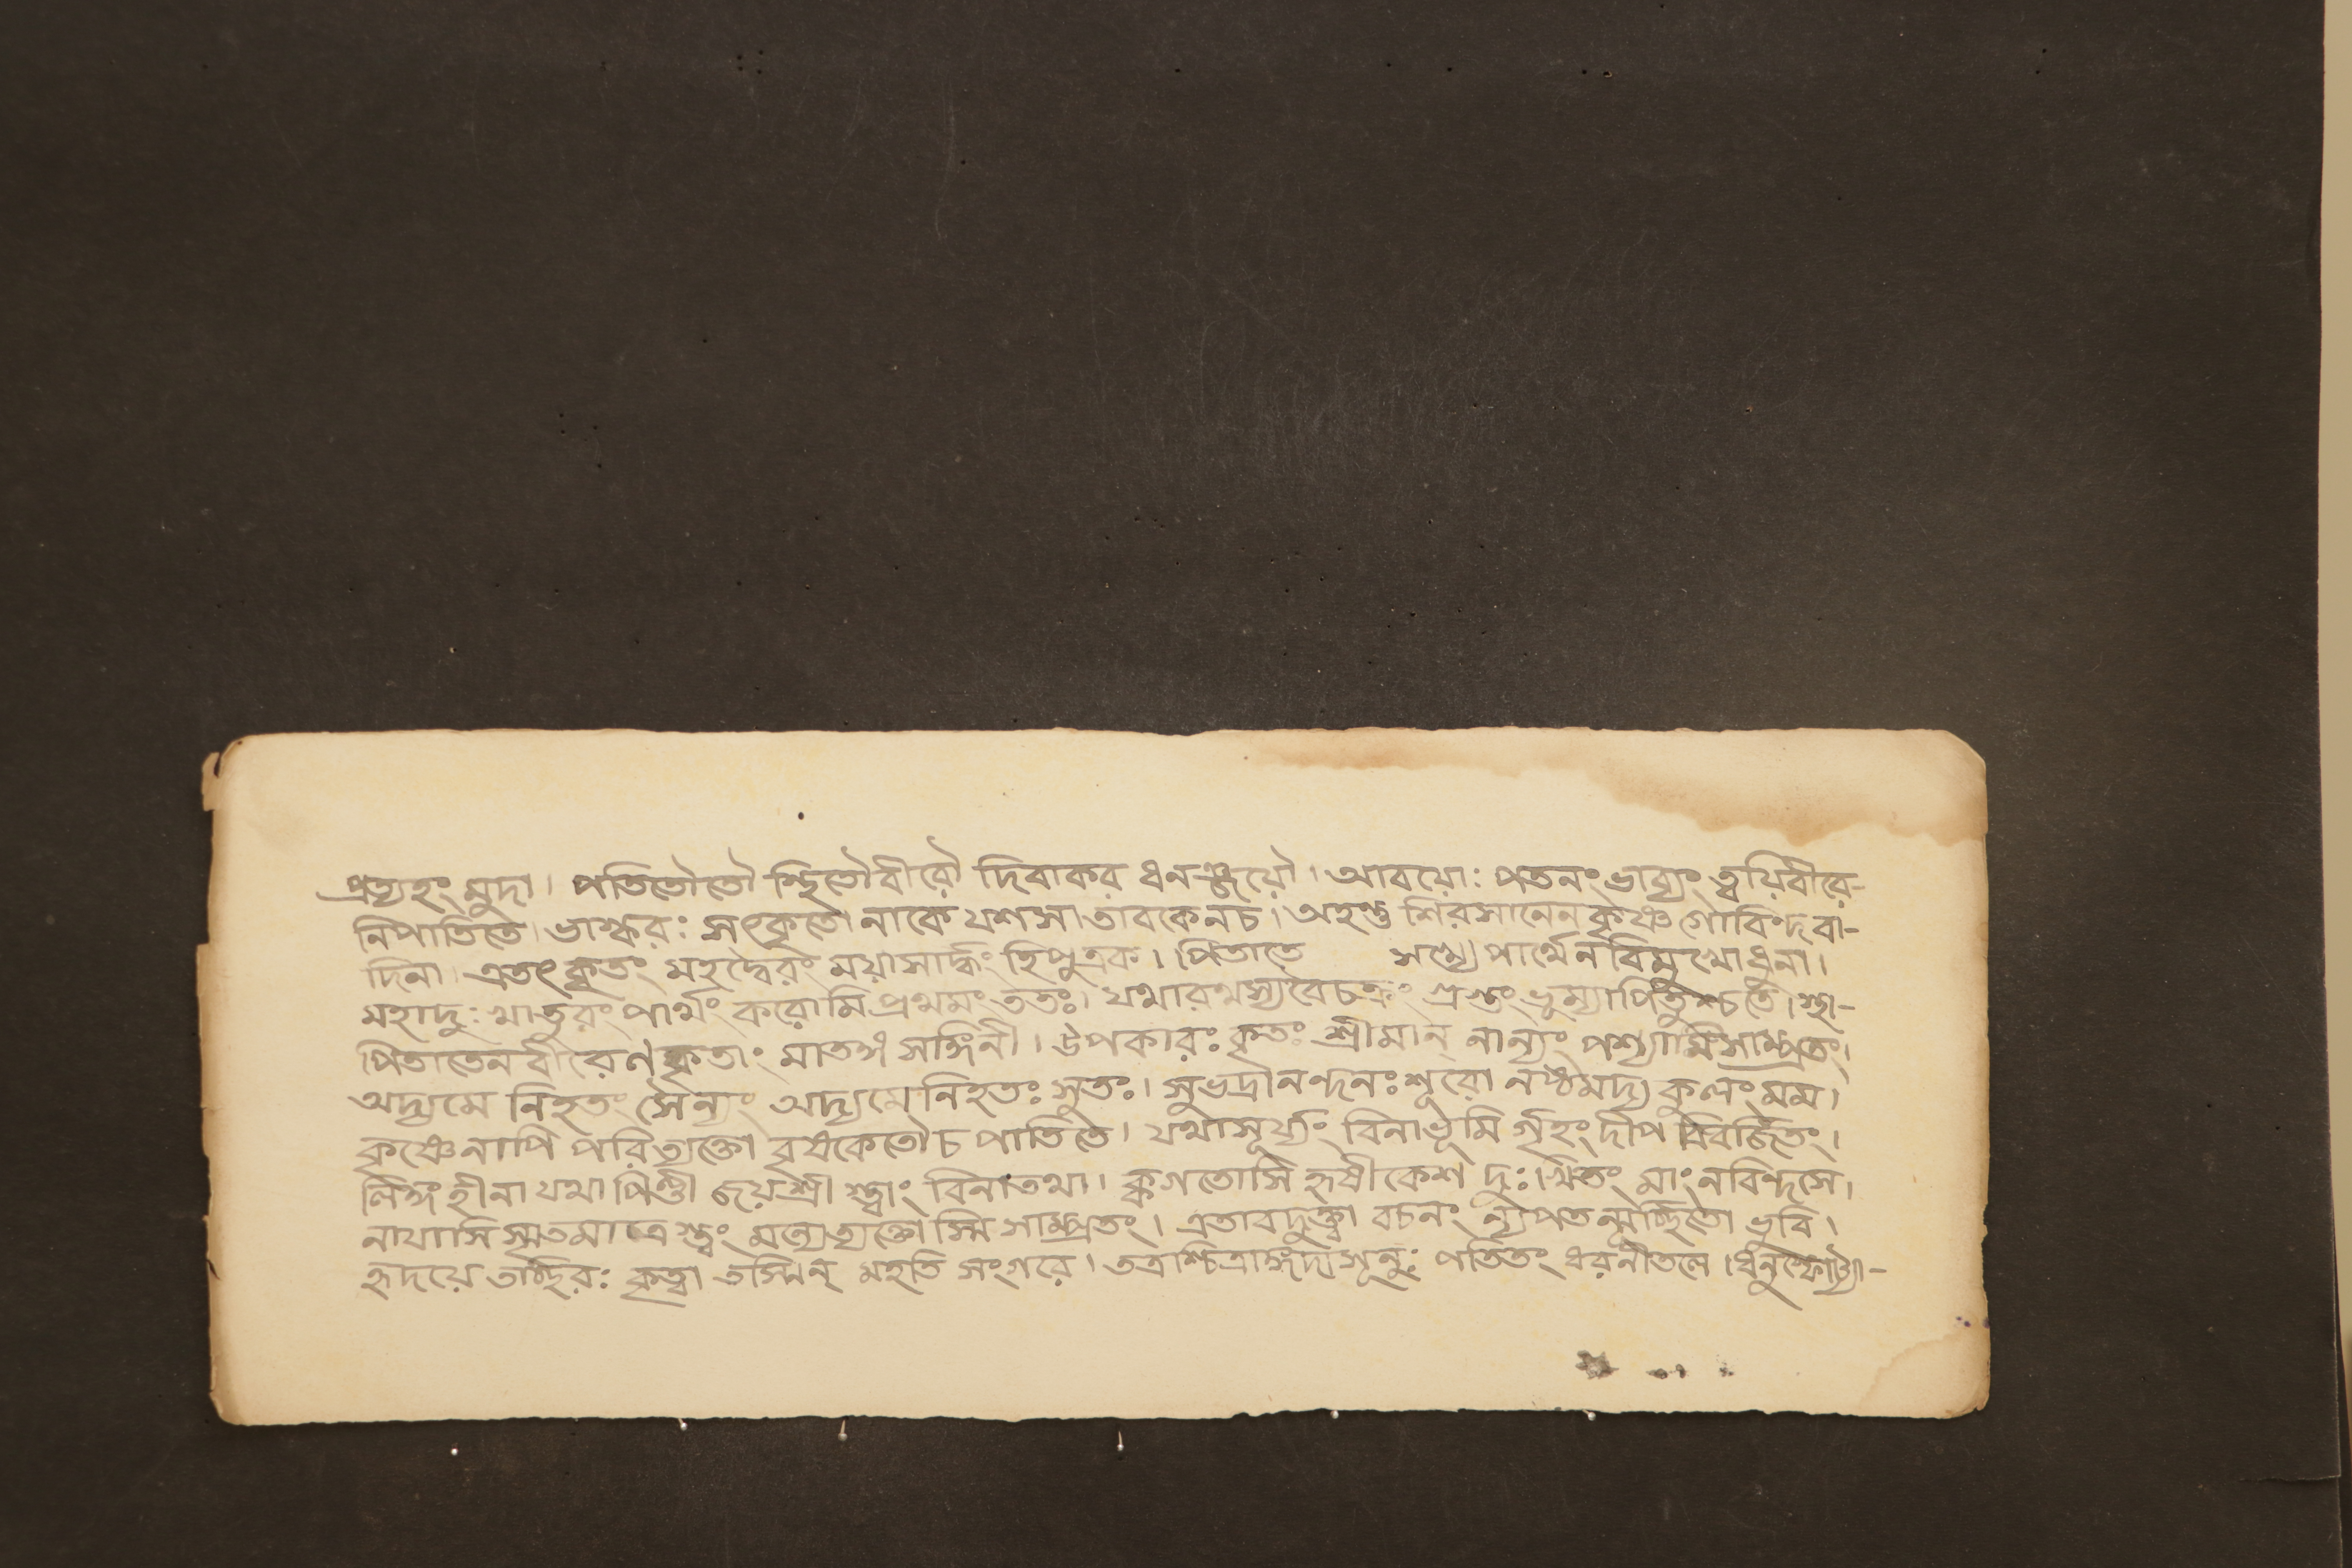 প্রত্যহং মুদা। পতিতৌতৌ স্থিতৌবীরৌ দিবাকর ধনঞ্জয়ৌ। আবয়োঃ পতনং ভাব্যং ত্বয়িবীরে-
নিপাতিতে। ভাস্করঃ সৎকৃতো নাকে যশসা তাবকেনচ। অহন্তু শিরসানেন কৃষ্ণ গোবিন্দবা-
দিনা। এতৎ কৃতং মহদ্বৈরং ময়াসার্দ্ধং হিপুত্রক। পিতাতে পার্থেন বিমুখোধুনা।
মহাদুঃখাতুরং পার্থং করোমি প্রথমং ততঃ। যথারথস্যবৈচক্রং গ্রস্তং ভূম্যাপিতুশ্চতে।
পিতাতেনবীরেণ কৃতাং মাতঙ্গ সঙ্গিনী। উপকারঃ কৃতঃ শ্রীমান্ নান্যং পশ্যামিসাম্প্রতং।
অদ্যমে নিহতং সৈন্যং অদ্যমে নিহতঃ সুতঃ। সুভদ্রানন্দনঃ শূরো নষ্টমদ্য কুলং মম।
কৃষ্ণেনাপি পরিত্যক্তো বৃষকেতৌচ পাতিতে। যথাসূর্য্যং বিনাভূমি র্গৃহং দীপ বিবর্জিতং।
লিঙ্গং হীনা যথা পিণ্ডী জয়শ্রী স্ত্বাং বিনাতথা। ক্বগতোসি হৃষীকেশ দুঃখিতং মাং নবিন্দসে।
নাযাসি স্মৃতমাত্র স্ত্বং মন্যেত্যক্তো স্মি সাম্প্রতং। এতাবদুক্ত্বা বচনং ন্যপতন্মূর্চ্ছিতো ভুবি।
হৃদয়ে তচ্ছিরঃ কৃত্বা তস্মিন্ মহতি সংগরে। ততশ্চিত্রাঙ্গদাসূনুঃ পতিতং ধরনীতলে।